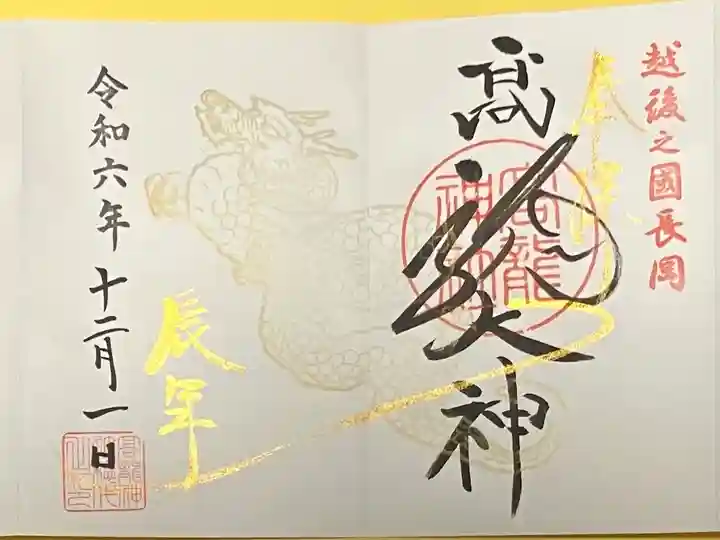 越後之國長岡
奉拝
高龍大神
高龍
神社
辰年
令和六年十二月一日